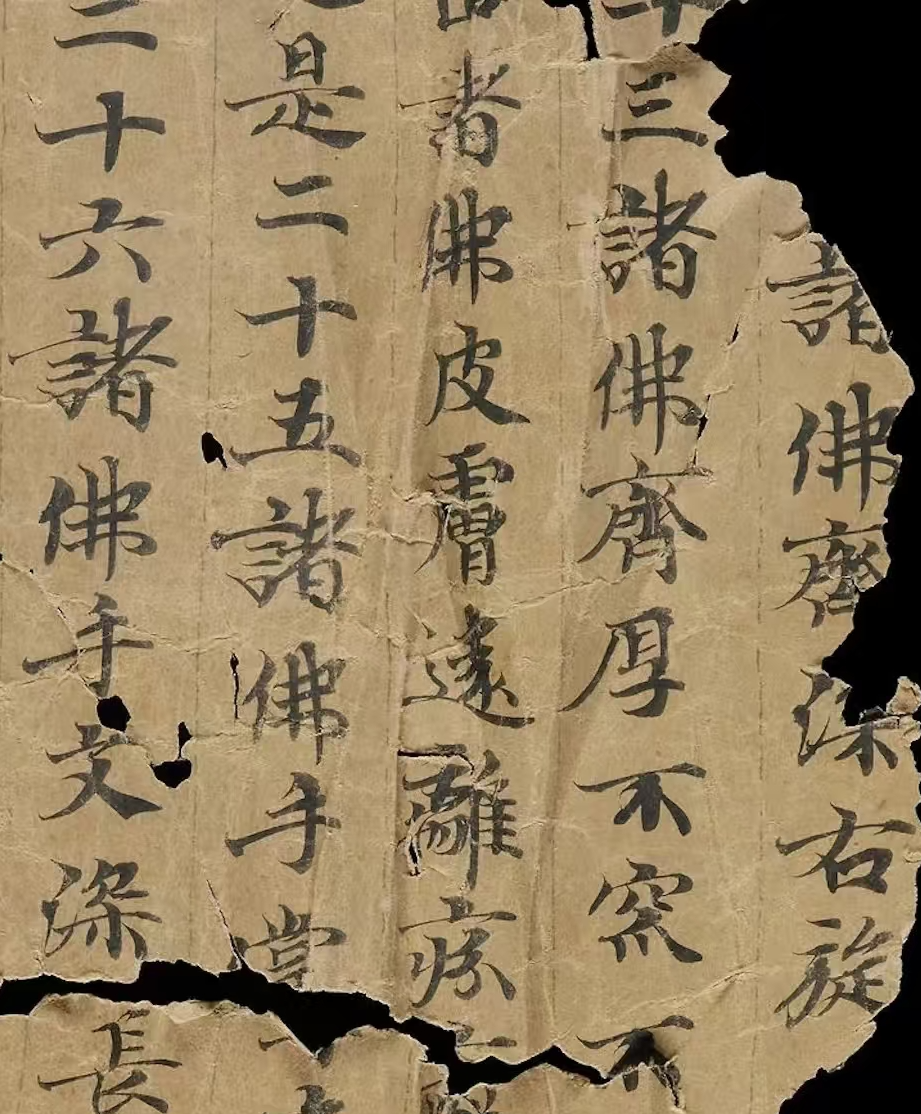 諸佛齊深右旋
十三諸佛齊厚不窊不
者佛皮膚遠離疥
是二十五諸佛手掌
二十六諸佛手文深長